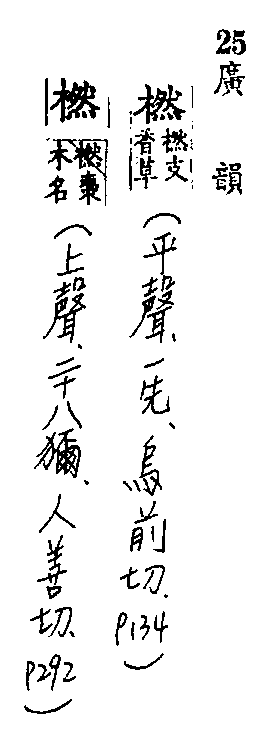 25廣韻
橪橪支香草(平聲、一先、烏前切、P134)
橪橪棗木名(上聲、二十八獮、人善切、P292)